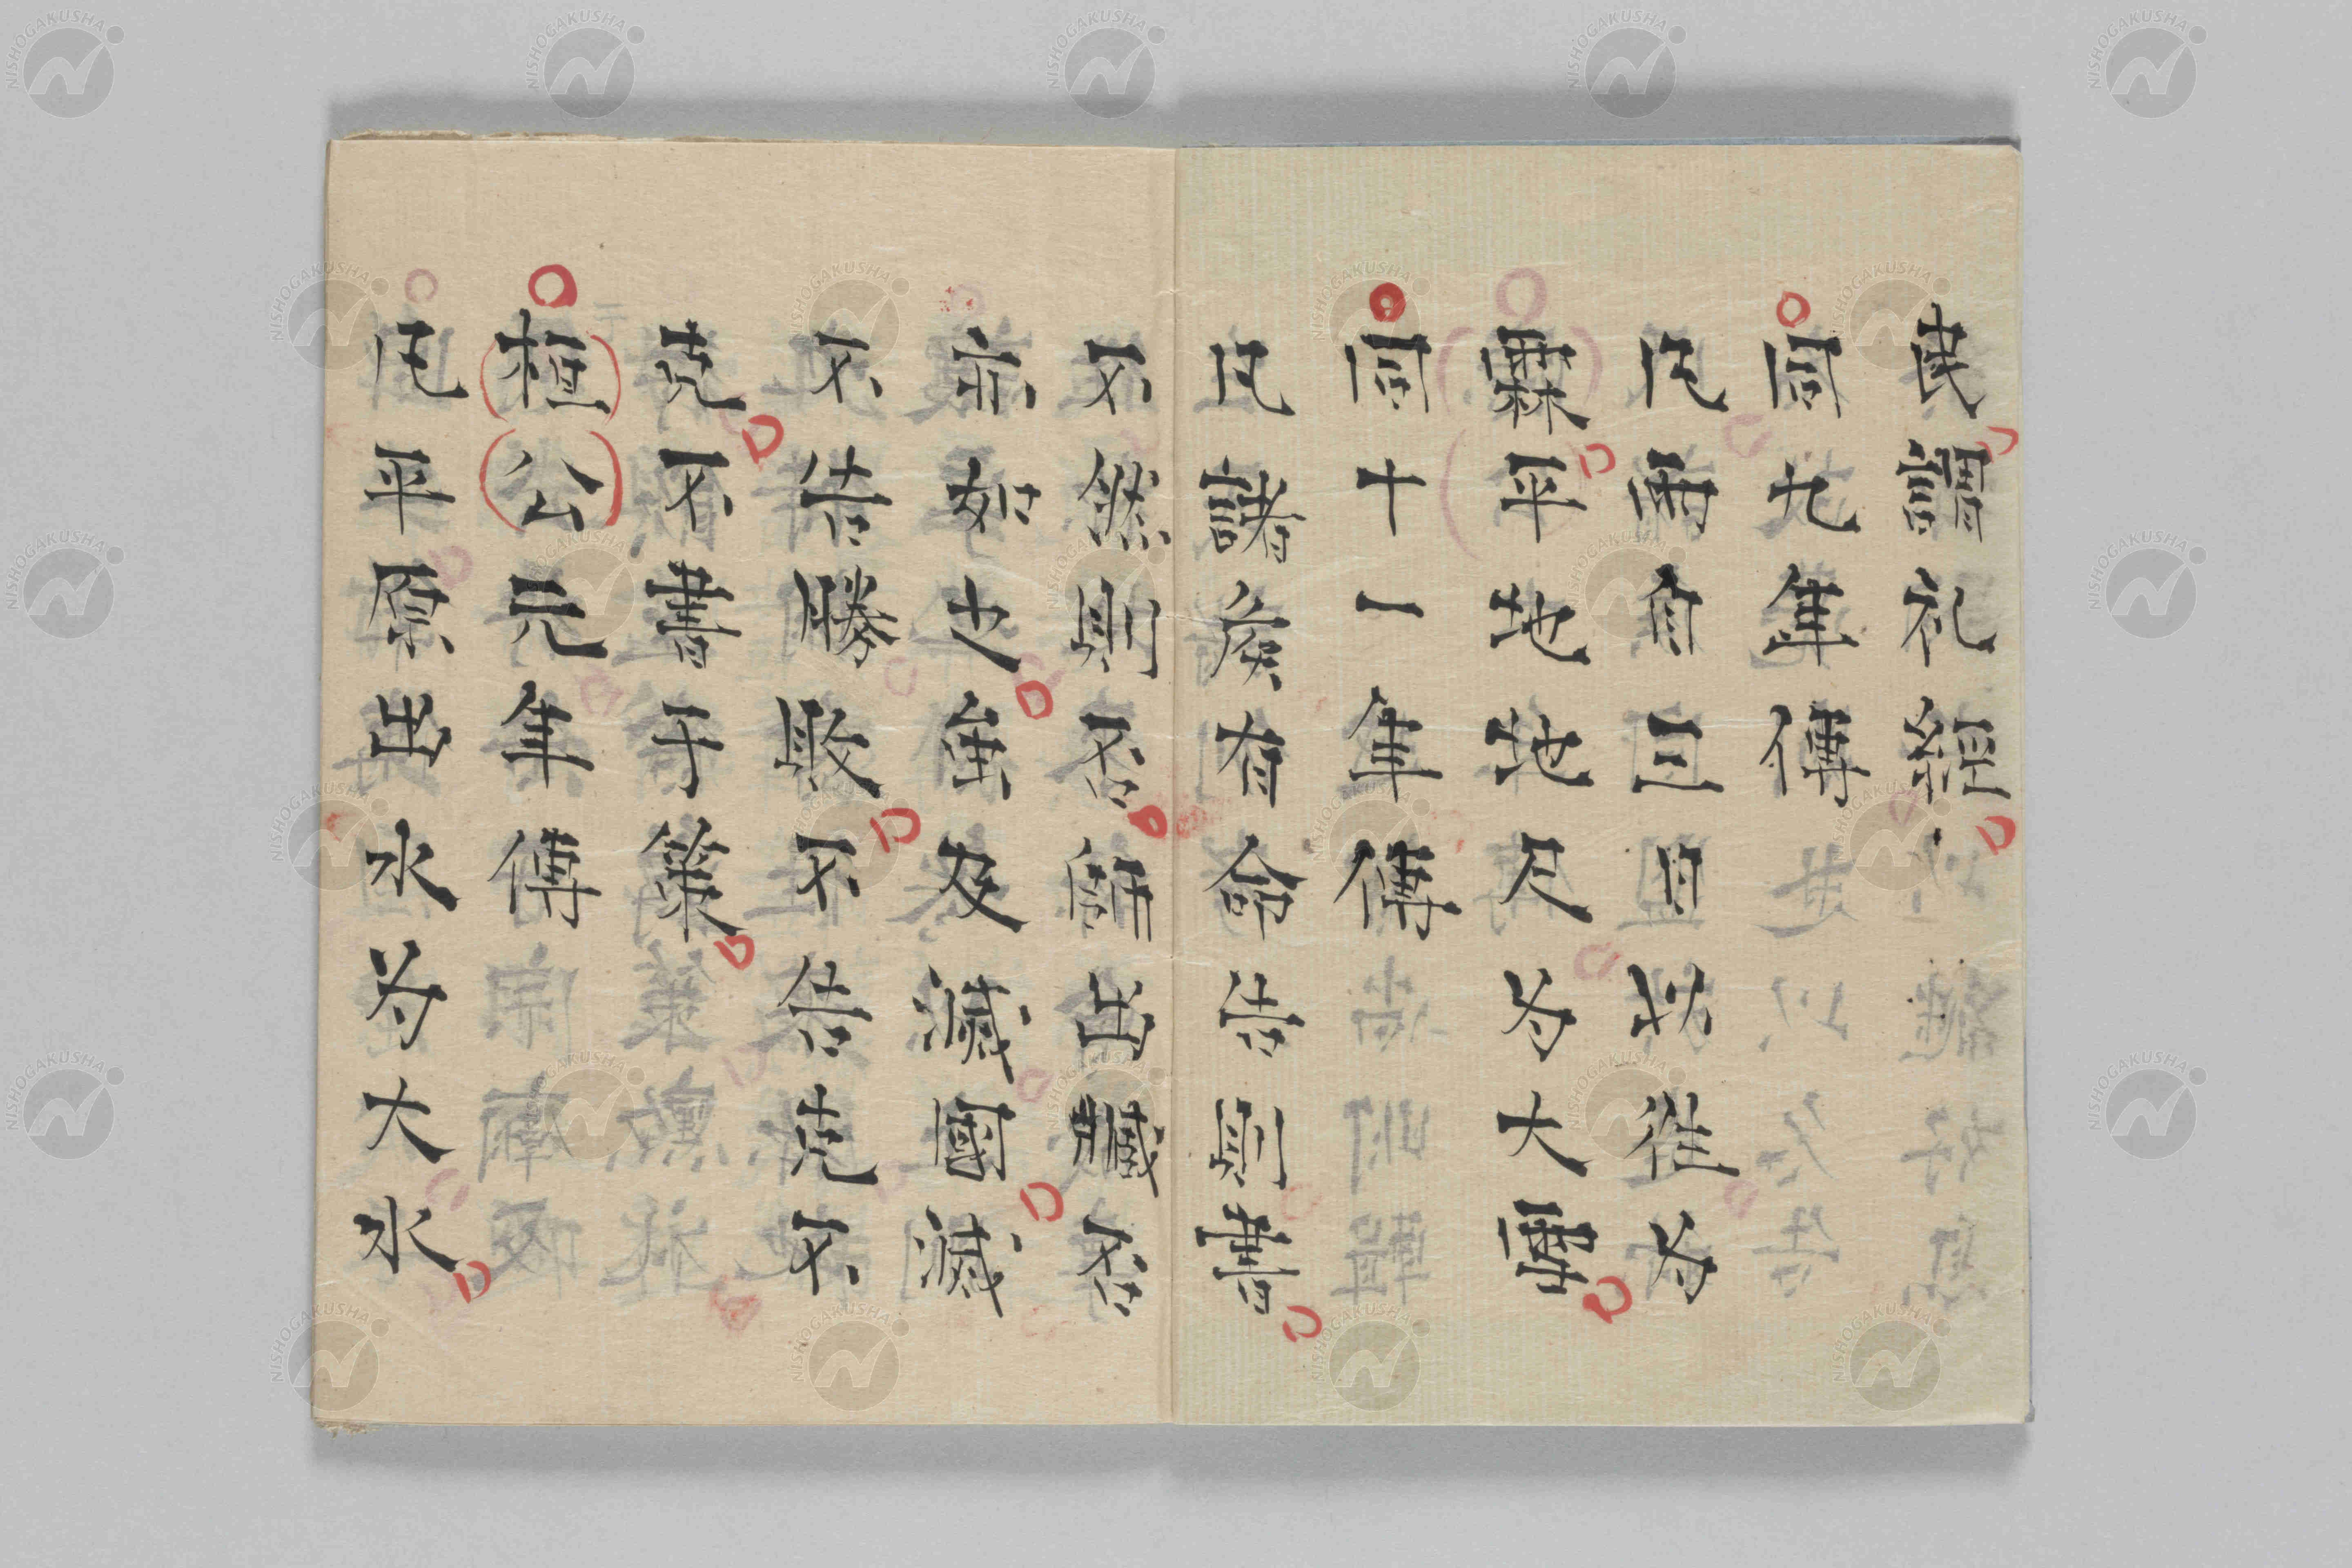 民謂礼經
同九年傳
凡雨自三日以徃为
霖平地地尺为大雪
同十一年傳
凡諸侯有命告則書
不然則否師出臧否
亦如之雖及滅國滅
不告勝敗不告克不
克不書于策
桓公元年傳
凡平原出水为大水
NISHOGAKUSHA